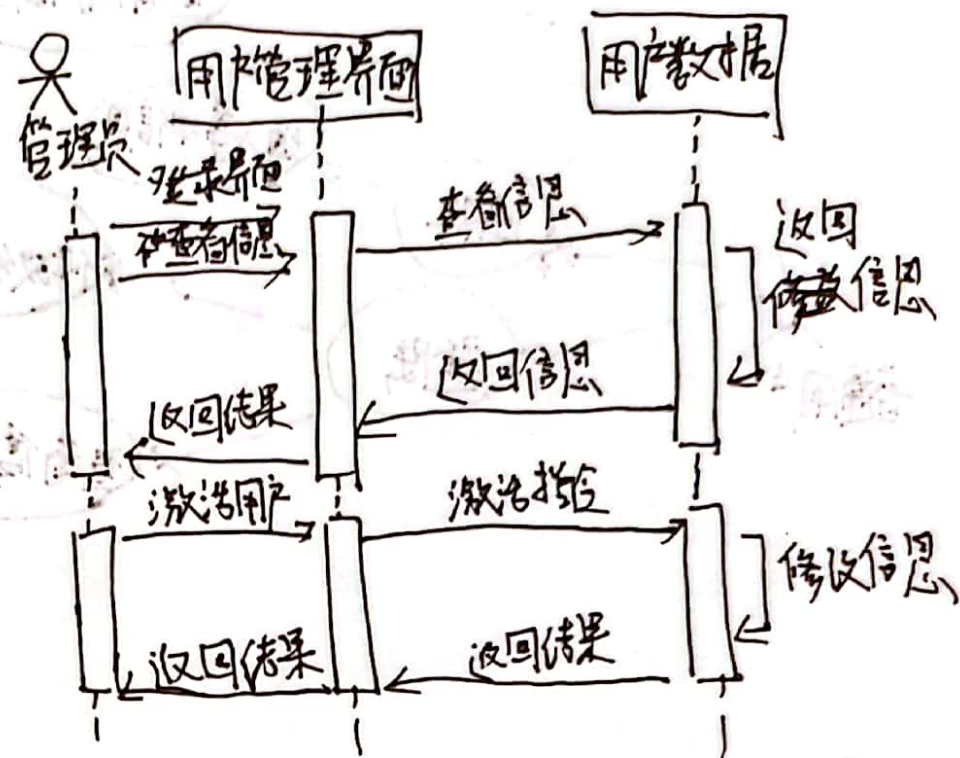 用户管理界面
用户数据
管理员
登录界面
查看信息
查看信息
返回
信息
返回信息
返回结果
激活用户
激活指令
修改信息
返回结果
返回结果